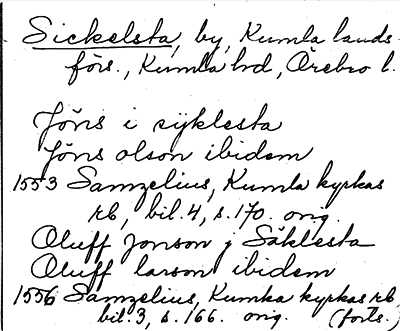 Sickelsta, by, Kumla lands-
förs., Kumla hd, Örebro l.
Jöns i syklesta
Jöns olson ibidem
1553 Samzelius, Kumla kyrkas
rb, bil. 4, s. 170. orig.
Oluff Jonson j Säklesta
Oluff larson ibidem
1556 Samzelius, Kumla kyrkas rb,
bil. 3, s. 166. orig. (forts.)